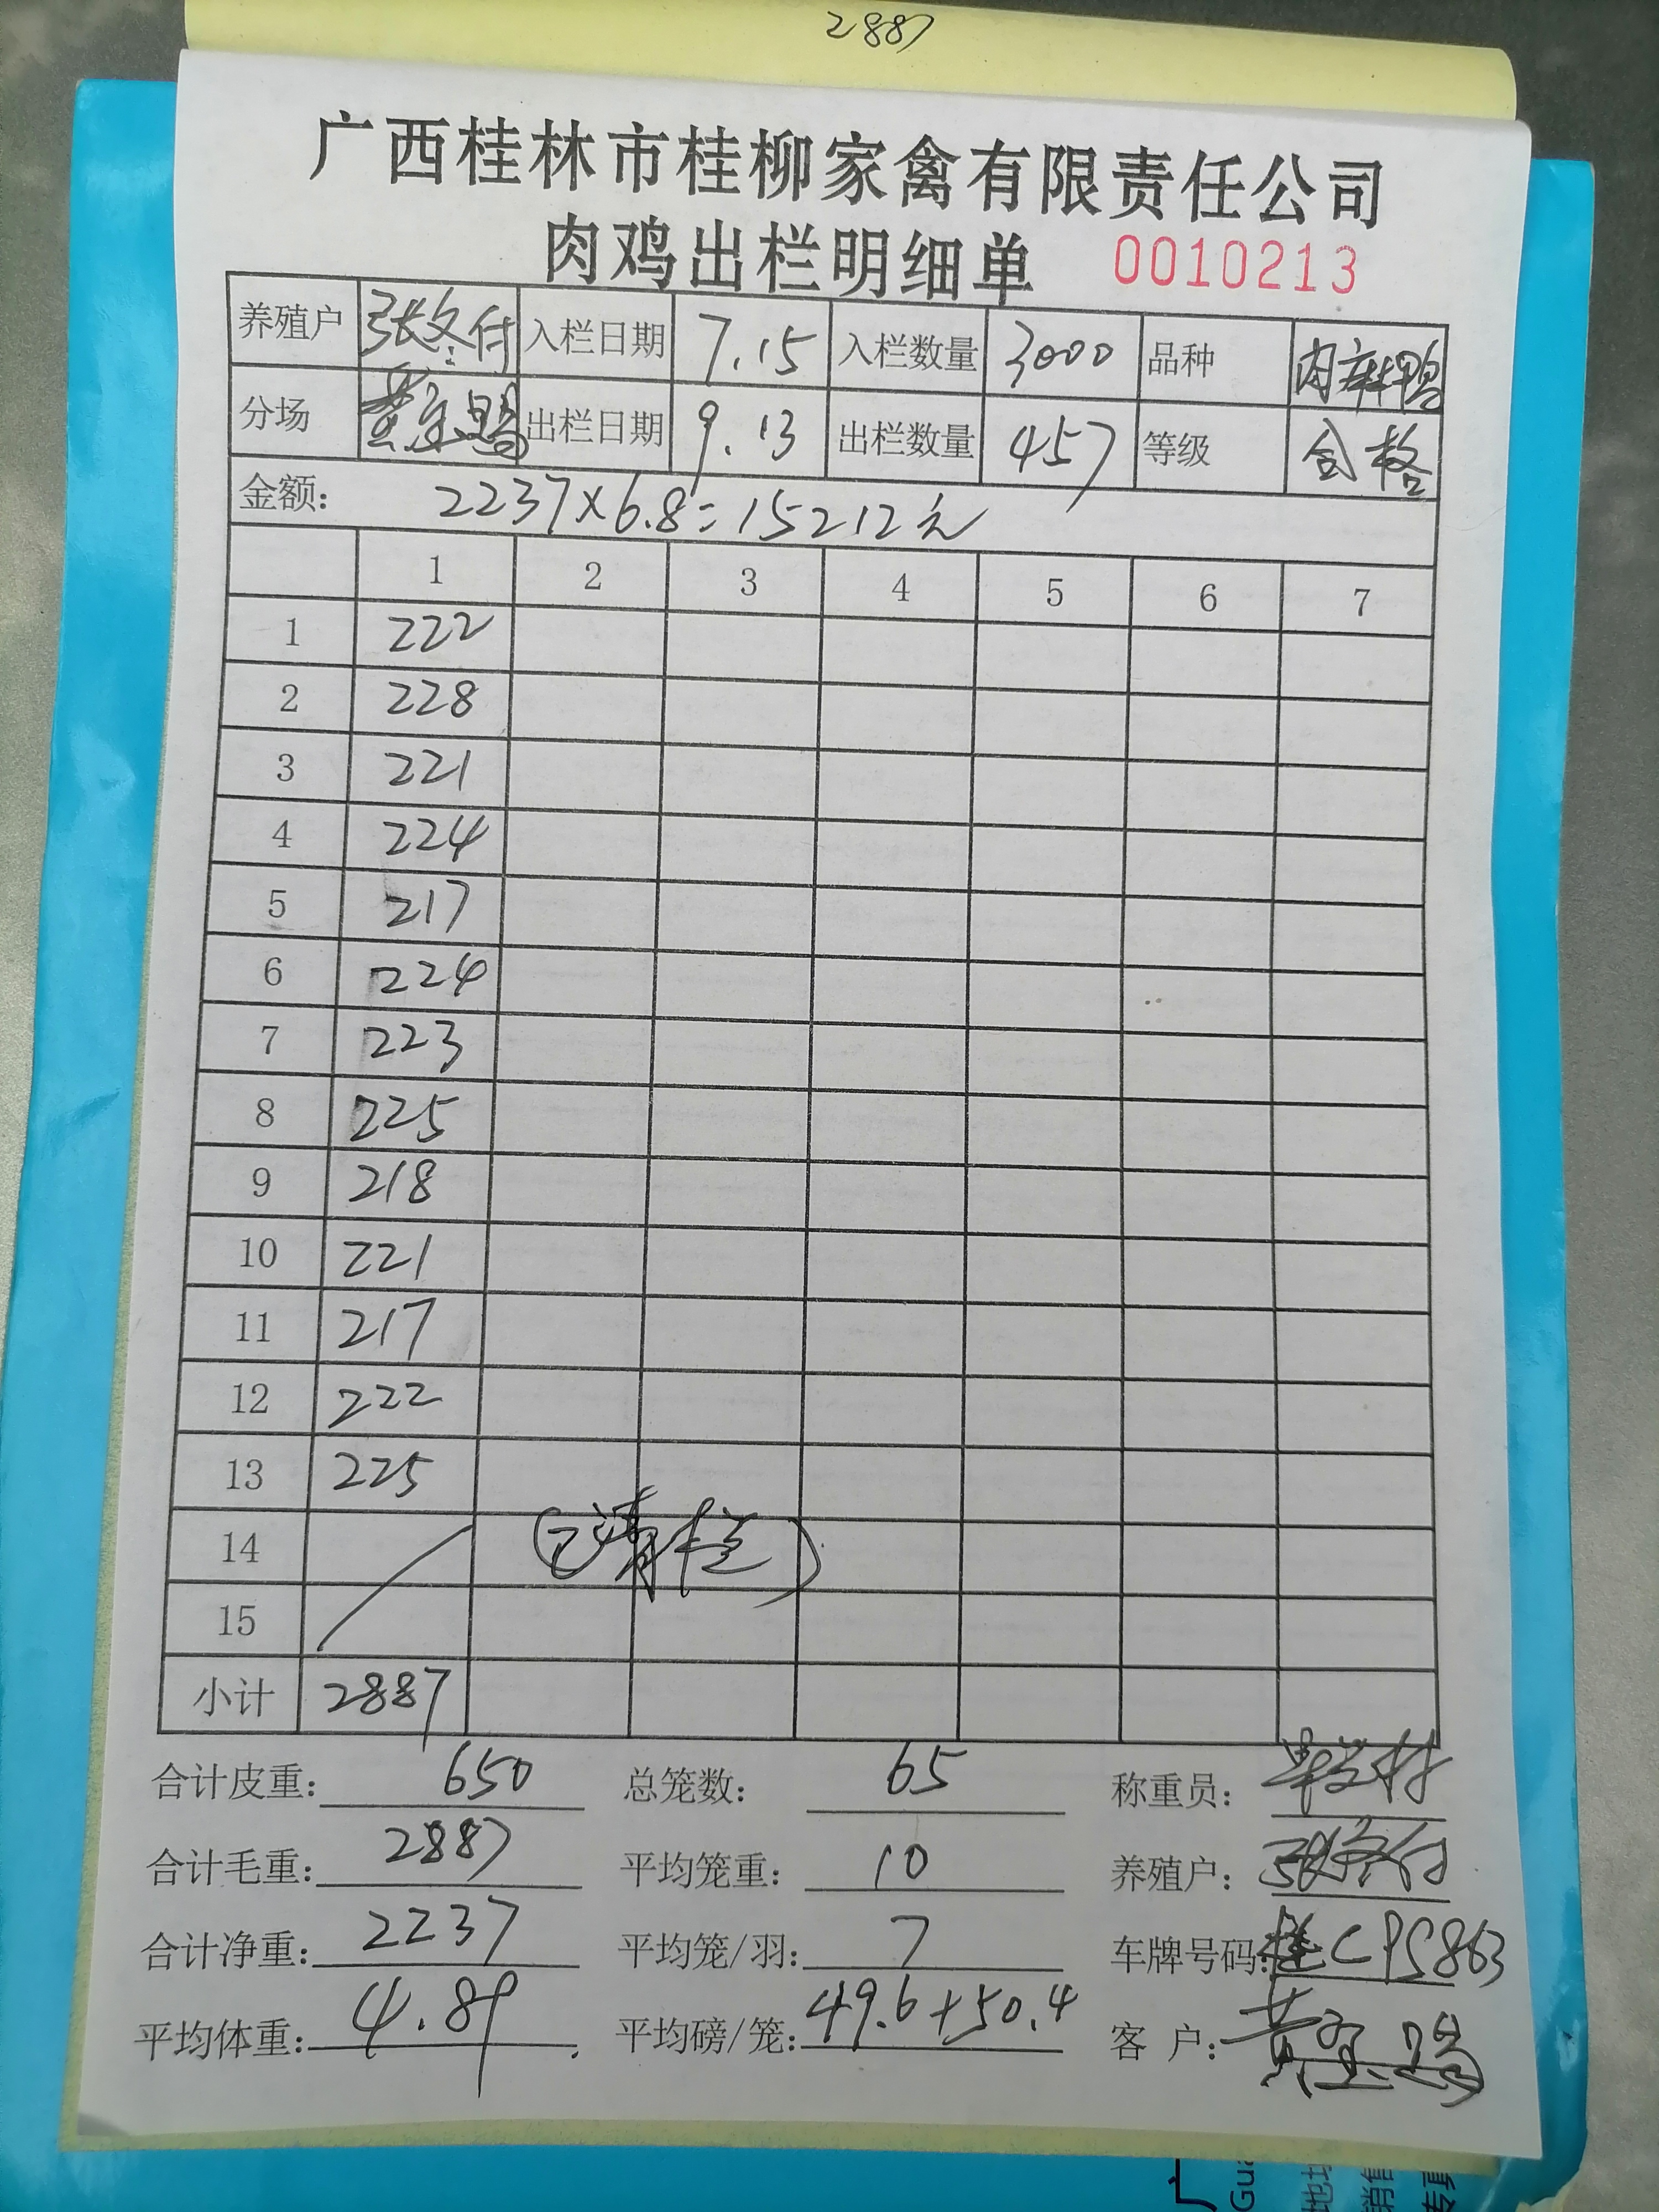 2887
广西桂林市桂柳家禽有限责任公司
肉鸡出栏明细单 0010213
养殖户 张文付 入栏日期 7.15 入栏数量 3000 品种 肉麻鸭
分场 出栏日期 9.13 出栏数量 457 等级 合格
金额: 2237×6.8=15212元
1 2 3 4 5 6 7
1 222
2 228
3 221
4 224
5 217
6 224
7 223
8 225
9 218
10 221
11 217
12 222
13 225
14 (已清栏)
15
小计 2887
合计皮重: 650 总笼数: 65 称重员:
合计毛重: 2887 平均笼重: 10 养殖户: 张文付
合计净重: 2237 平均笼/羽: 7 车牌号码: 桂CPS863
平均体重: 4.89 平均磅/笼: 49.6+50.4 客 户:
Gua
地址
销售
传真